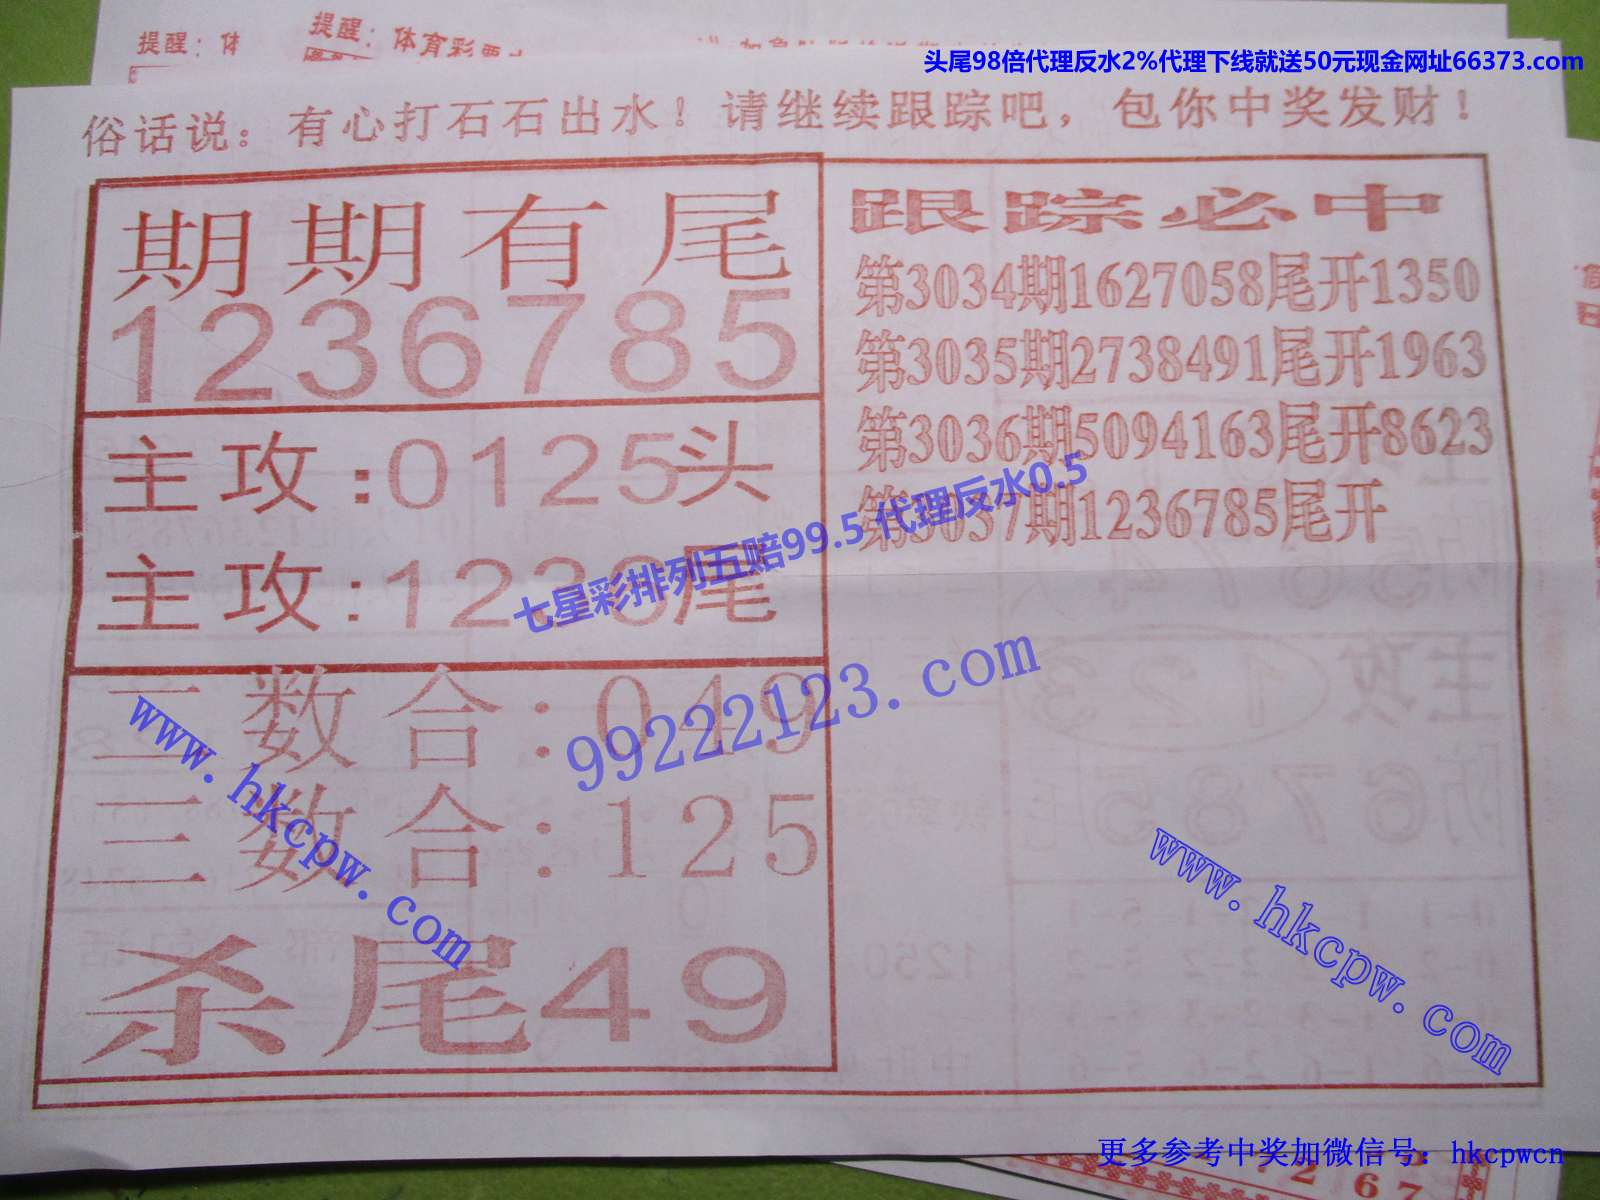 提醒：体
提醒：体育彩票
头尾98倍代理反水2%代理下线就送50元现金网址66373.com
俗话说：有心打石石出水！请继续跟踪吧，包你中奖发财！
期期有尾
1236785
主攻:0125头
主攻:1236尾
二数合:049
三数合:125
杀尾49
跟踪必中
第3034期1627058尾开1350
第3035期2738491尾开1963
第3036期5094163尾开8623
第3037期1236785尾开
七星彩排列五赔99.5 代理反水0.5
99222123.com
www.hkcpw.com
www.hkcpw.com
更多参考中奖加微信号：hkcpwcn
2 6 7